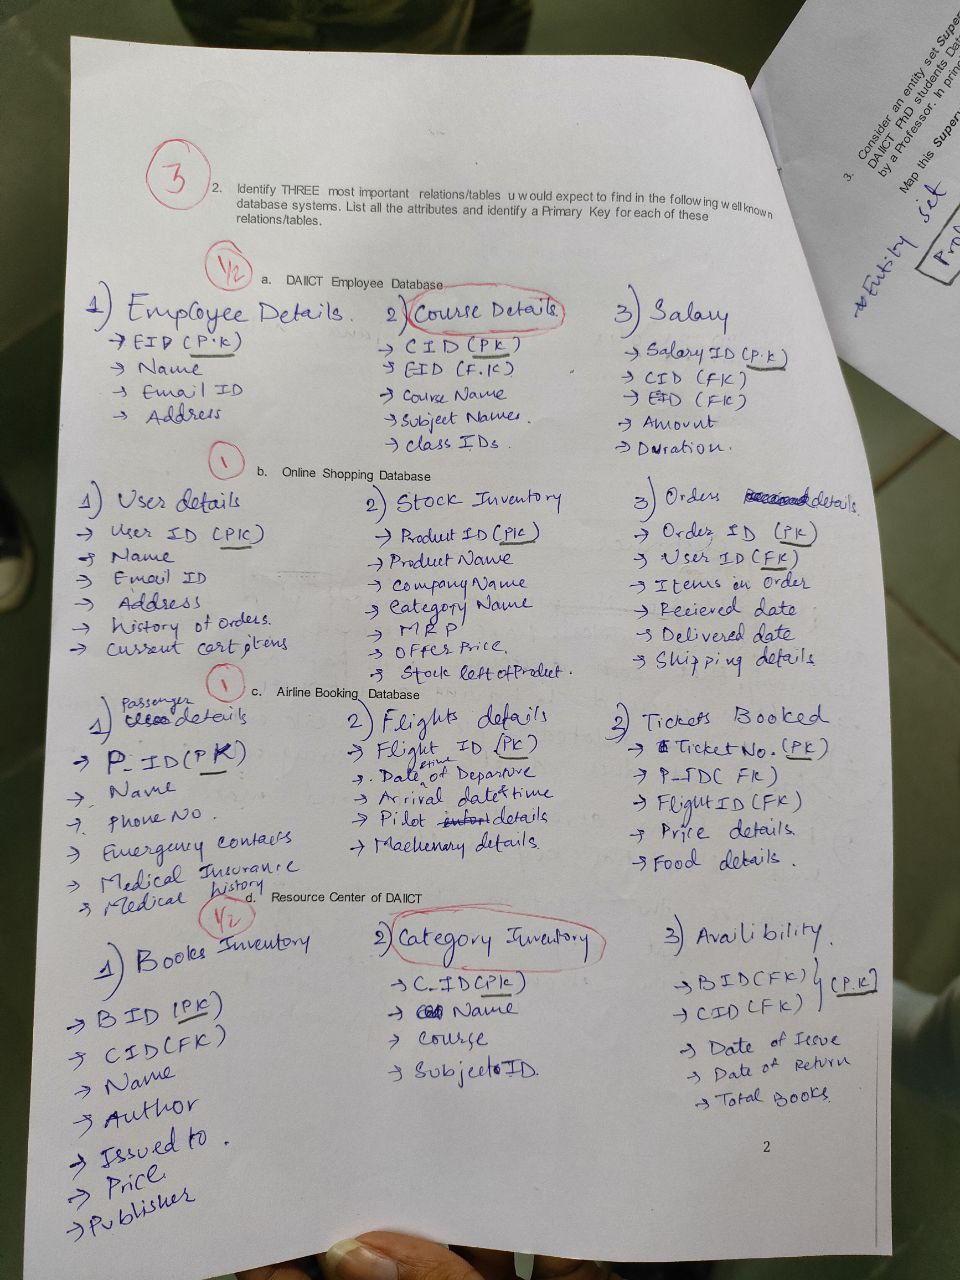 3
2. Identify THREE most important relations/tables u would expect to find in the following well known
database systems. List all the attributes and identify a Primary Key for each of these
relations/tables.
1/2
a. DAIICT Employee Database
1) Employee Details.
→ EID (P.K)
→ Name
→ Email ID
→ Address
2) Course Details
→ CID (PK)
→ EID (F.K)
→ Course Name
→ Subject Names
→ Class IDs.
3) Salary
→ Salary ID (P.K)
→ CID (FK)
→ EID (FK)
→ Amount
→ Duration.
1
b. Online Shopping Database
1) User details
→ User ID (PK)
→ Name
→ Email ID
→ Address
→ history of orders.
→ current cart items
2) Stock Inventory
→ Product ID (PK)
→ Product Name
→ Company Name
→ Category Name
→ MRP
→ Offer Price.
→ Stock left of Product.
3) Orders details.
→ Order ID (PK)
→ User ID (FK)
→ Items in order
→ Recieved date
→ Delivered date
→ Shipping details
1
c. Airline Booking Database
1) Passenger details
→ P_ID (PK)
→ Name
→ Phone No.
→ Emergency contacts
→ Medical Insurance
→ Medical history
2) Flights details
→ Flight ID (PK)
→ Date & time of Departure
→ Arrival date & time
→ Pilot details
→ Machenary details
2) Tickets Booked
→ Ticket No. (PK)
→ P_ID (FK)
→ Flight ID (FK)
→ Price details
→ Food details.
1/2
d. Resource Center of DAIICT
1) Books Inventory
→ BID (PK)
→ CID (FK)
→ Name
→ Author
→ Issued to.
→ Price
→ Publisher
2) Category Inventory
→ C_ID (PK)
→ Name
→ Course
→ Subject ID.
3) Availibility.
→ BID (FK) } (P.K)
→ CID (FK)
→ Date of Issue
→ Date of Return
→ Total Books.
2
3. Consider an entity set Super
DAIICT PhD students Dat
by a Professor. In prin
Map this Super
→ Entity set
Prof